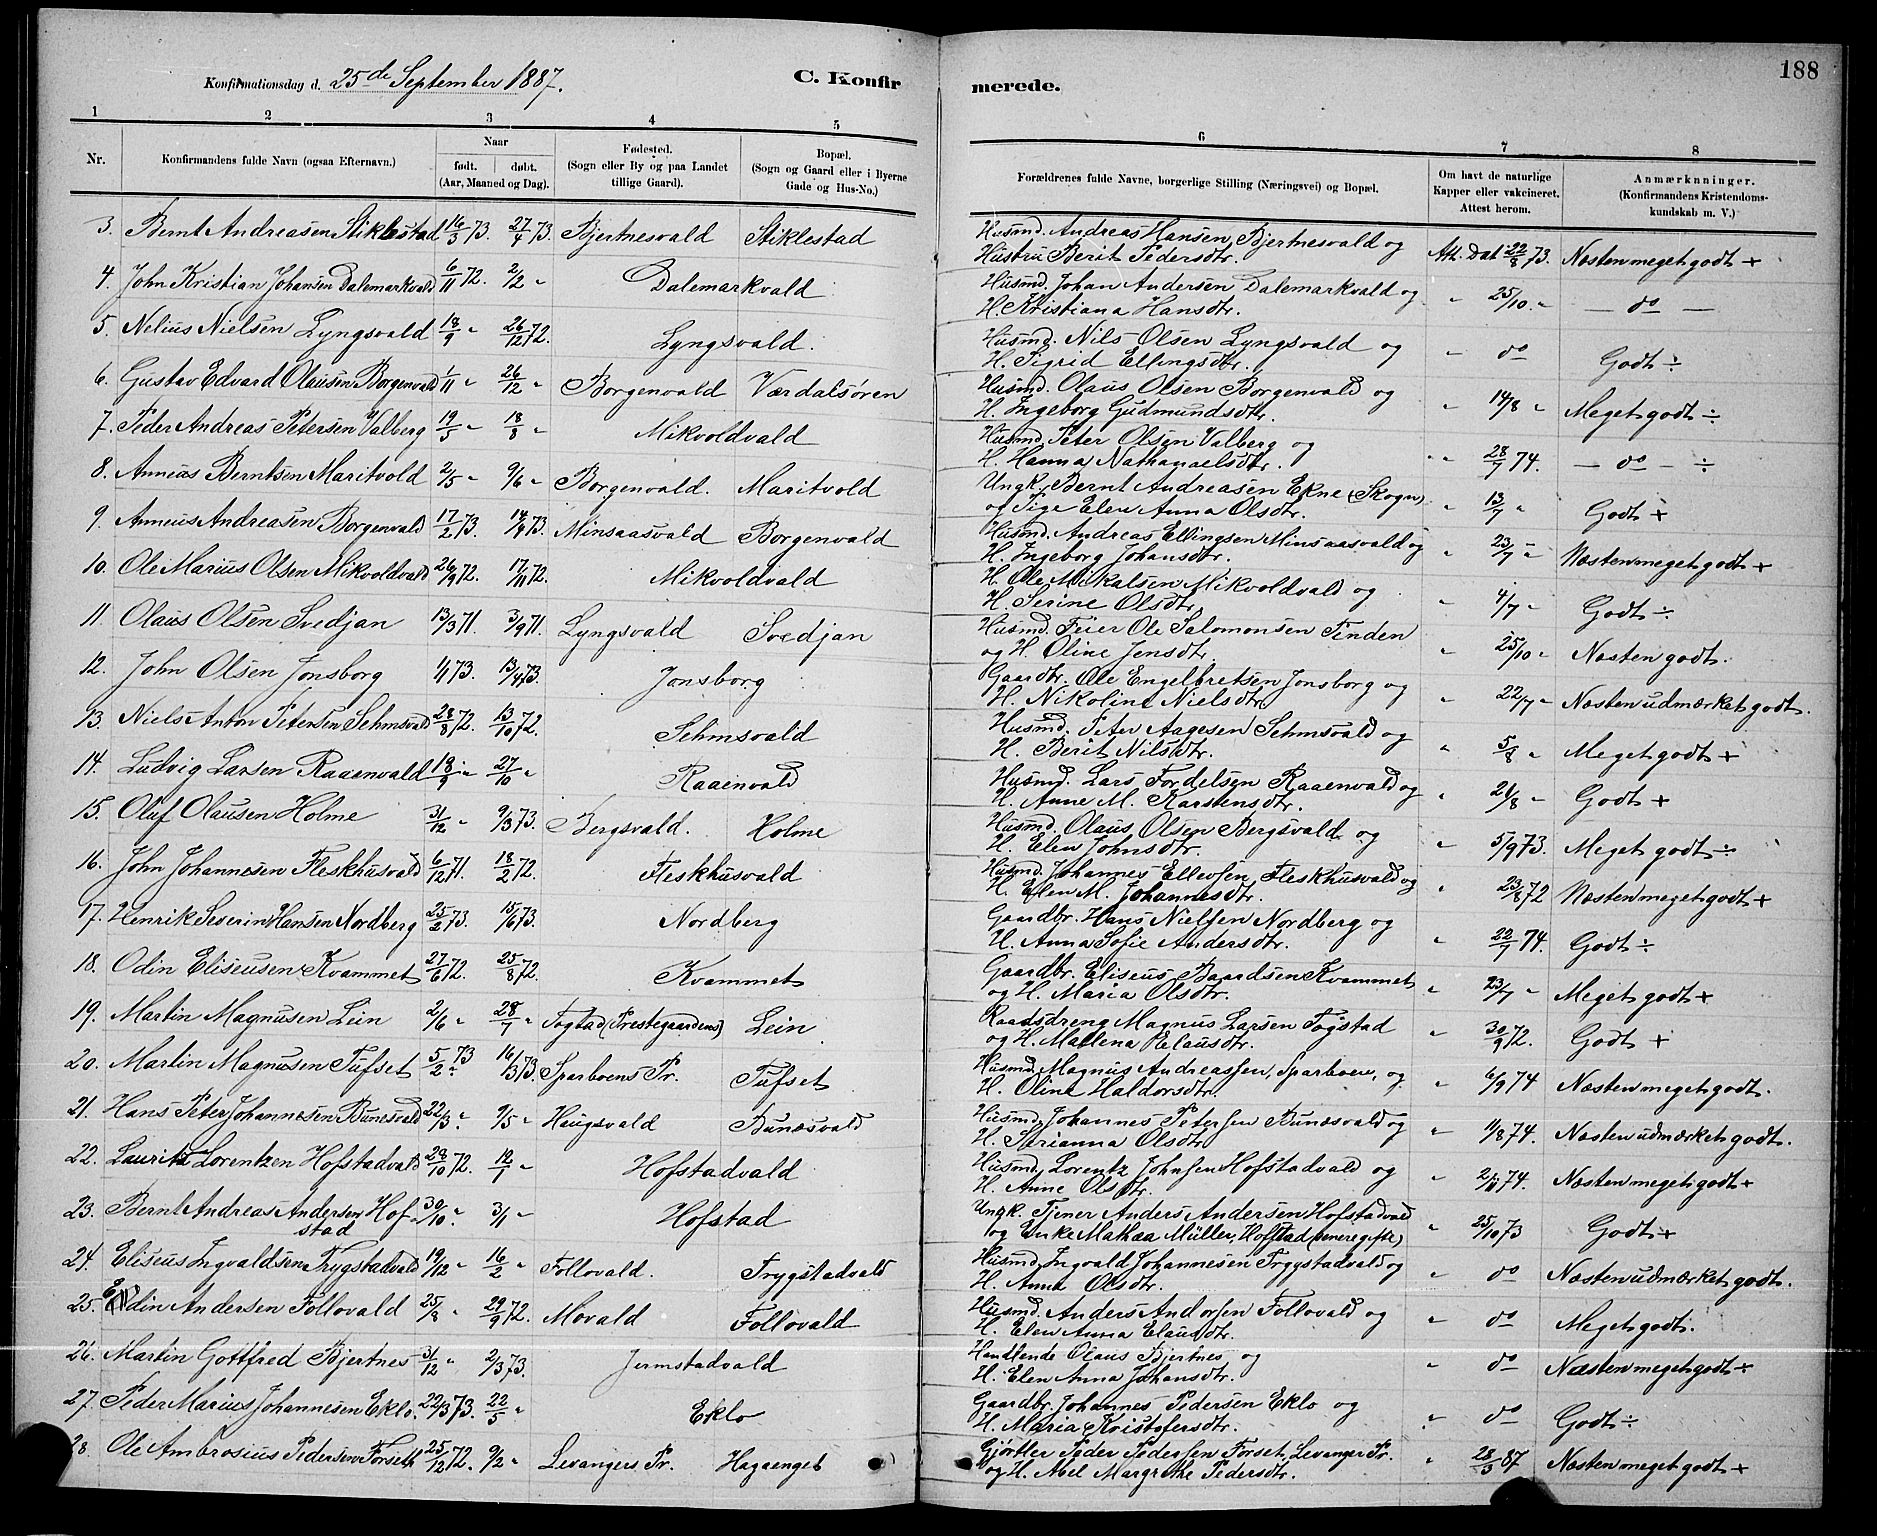 188
Konfirmationsdag d. 25de September 1887. C. Konfirmerede.
1 2 3 4 5 6 7 8
Nr. Konfirmandens fulde Navn (ogsaa Efternavn.) Naar født. døbt. (Aar, Maaned og Dag). Fødested. (Sogn eller By og paa Landet tillige Gaard). Bopæl. (Sogn og Gaard eller i Byerne Gade og Hus-No.) Forældrenes fulde Navne, borgerlige Stilling (Næringsvei) og Bopæl. Om havt de naturlige Kopper eller vakcineret. Attest herom. Anmærknninger. (Konfirmandens Kristendomskundskab m. V.)
3. Bernt Andreasen Stiklestad 16/3 73. 27/4 73. Bjertnesvald Stiklestad Husmd. Andreas Hansen Bjertnesvald og Hustru Berit Pedersdtr. Att. Dat 22/8 73. Næsten meget godt +
4. John Kristian Johansen Dalemarkvald 6/11 72. 2/2 " Dalemarkvald Husmd. Johan Andersen Dalemarkvald og H. Kristiana Hansdtr. " 25/10. " — do —
5. Nelius Nielsen Lyngsvald 18/9 " 26/12 72. Lyngsvald. Husmd. Nils Olsen Lyngsvald og H. Sigrid Ellingsdtr. " do Godt ÷
6. Gustav Edvard Olausen Borgenvald 1/11 " 26/12 " Borgenvald Værdalsøren Husmd. Olaus Olsen Borgenvald og H. Ingeborg Gudmundsdtr. " 14/8 " Meget godt ÷
7. Peder Andreas Petersen Valberg 19/5 " 18/8 " Mikvoldvald Husmd. Peter Olsen Valberg og H. Hanna Nathanaelsdtr. " 28/7 74. — do — ÷
8. Anneus Berntsen Maritvold 2/5 " 9/6 " Borgenvald. Maritvold Ungk. Bernt Andreasen Ekne (Skogn) og Pige Elen Anna Olsdtr. " 13/7 " Godt +
9. Anneus Andreasen Borgenvald 17/2 73. 14/4 73. Minsaasvald Borgenvald Husmd. Andreas Ellingsen Minsaasvald og H. Ingeborg Johansdtr. " 23/7 " Næsten meget godt +
10. Ole Marius Olsen Mikvoldvald 26/9 72. 17/11 72. Mikvoldvald H. Ole Mikalsen Mikvoldvald og H. Serine Olsdtr. " 4/7 " Godt ÷
11. Olaus Olsen Svedjan 13/3 71. 3/9 71. Lyngsvald Svedjan Husmd. Feier Ole Salomonsen Tinden og H. Oline Jensdtr. " 25/10 " Næsten godt.
12. John Olsen Jonsborg 1/1 73. 13/4 73. Jonsborg Gaardbr. Ole Engelbretsen Jonsborg og H. Nikoline Nielsdtr. " 22/7 " Næsten udmærket godt.
13. Niels Anton Petersen Sehmsvald 28/8 72. 13/10 72. Sehmsvald Husmd. Peter Aagesen Sehmsvald og H. Berit Nilsdtr. " 5/8 " Meget godt +
14. Ludvig Larsen Raaenvald 18/9 " 27/10 " Raaenvald Husmd. Lars Fordelsen Raaenvald og H. Anne M. Karstensdtr. " 21/8 " Godt +
15. Oluf Olausen Holme 31/12 " 9/3 73. Bergsvald. Holme Husmd. Olaus Olsen Bergsvald og H. Elen Johnsdtr. " 5/9 73. Meget godt ÷
16. John Johannesen Fleskhusvald 6/12 71. 18/2 72. Fleskhusvald Husmd. Johannes Ellevsen Fleskhusvald og H. Elen M. Johannesdtr. " 23/8 72 Næsten meget godt +
17. Henrik Severin Hansen Nordberg 25/2 73. 15/6 73. Nordberg Gaardbr. Hans Nielsen Nordberg og H. Anna Sofie Andersdtr. " 22/7 74. Godt ÷
18. Odin Eliseusen Kvammet 27/6 72. 25/8 72. Kvammet Gaardbr. Eliseus Baardsen Kvammet og H. Maria Olsdtr. " 23/7 " Meget godt +
19. Martin Magnusen Lein 2/6 " 28/7 " Fogstad (Prestegaardens) Lein Raadsdreng Magnus Larsen Fogstad og H. Mallena Elausdtr. " 30/9 72. Godt +
20. Martin Magnusen Tufset 5/2 73 16/3 73. Sparboens Pr. Tufset Husmd. Magnus Andreassen, Sparboen, og H. Oline Haldorsdtr. " 6/9 74 Næsten meget godt.
21. Hans Peter Johannesen Bunesvald 22/3 " 9/5 " Haugsvald Bunesvald Husmd. Johannes Petersen Bunæsvald og H. Serianna Olsdtr. " 11/8 74. Næsten udmærket godt.
22. Lauritz Lorentzen Hofstadvald 28/10 72. 12/7 " Hofstadvald Husmd. Lorentz Johnsen Hofstadvald og H. Anne Olsdtr. " 2/11 74. Næsten meget godt +
23. Bernt Andreas Andersen Hofstad 30/10 " 3/11 " Hofstad Ungk. Tjener Anders Andersen Hofstadvald og Enke Mathea Müller, Hofstad (senere gifte) " 25/10 73 Godt +
24. Eliseus Ingvaldsen Trygstadvald 19/12 " 16/2 " Follovald. Trygstadvald Husmd. Ingvald Johannesen Trygstadvald og H. Anna Olsdtr. " do Næsten udmærket godt.
25. Edin Andersen Follovald 25/8 " 29/9 72. Movald Follovald Husmd. Anders Andersen Follovald og H. Elen Anna Elausdtr. " do Meget godt.
26. Martin Gottfred Bjertnes 31/12 " 2/3 73. Jermstadvald Handlende Olaus Bjertnes og H. Elen Anna Johansdtr. " do Næsten meget godt +
27. Peder Marius Johannesen Eklo. 22/3 73. 22/5 " Eklo Gaardbr. Johannes Pedersen Eklo og H. Maria Kristofersdtr. " do Godt ÷
28. Ole Ambrosius Pedersen Forseth 25/12 72. 9/2 " Levangers Pr. Hagaenget Gjørtler Peder Pedersen Forset, Levanger Pr. og H. Abel Margrethe Pedersdtr. " 28/3 87 Næsten meget godt +